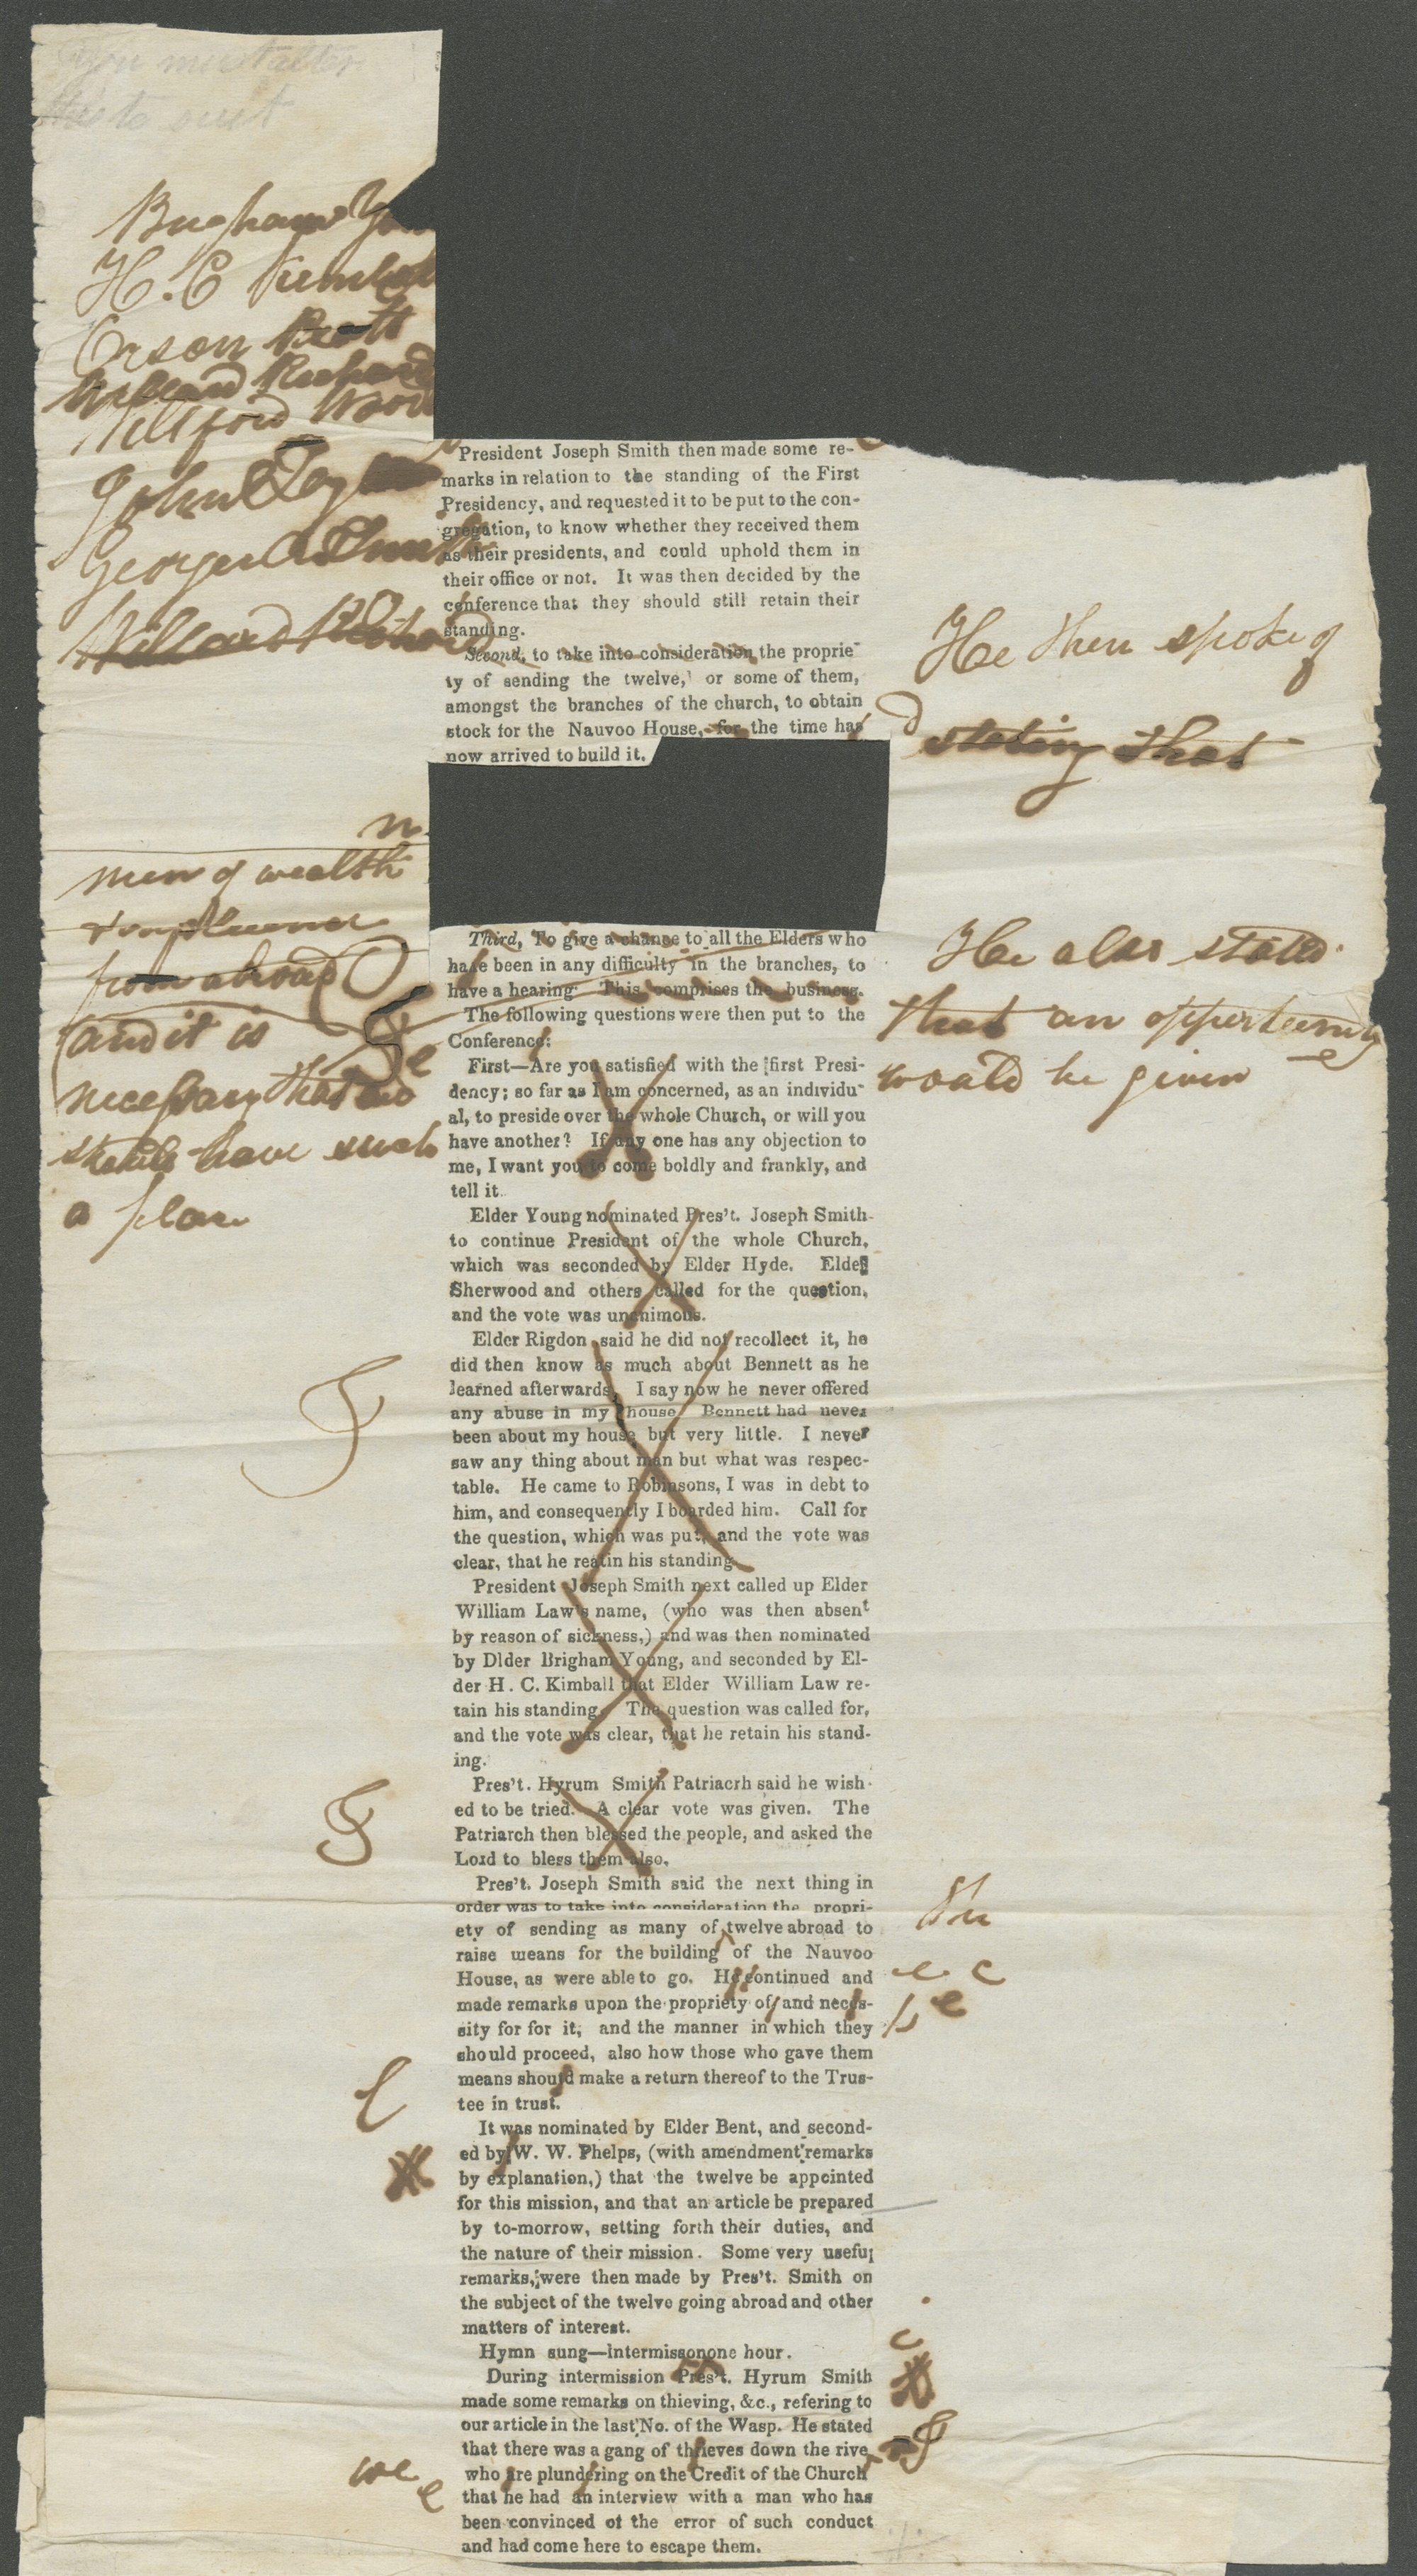 you must alter
this to suit
Brigham Yo
H. C Kimbal
Orson Pratt
Willard Richard
Wilford Wood
John Tay
George A Smith
Willard Richard
President Joseph Smith then made some re-
marks in relation to the standing of the First
Presidency, and requested it to be put to the con-
gregation, to know whether they received them
as their presidents, and could uphold them in
their office or not. It was then decided by the
conference that they should still retain their
standing.
Second, to take into consideration the proprie-
ty of sending the twelve, or some of them,
amongst the branches of the church, to obtain
stock for the Nauvoo House, for the time has
now arrived to build it.
He then spoke of
stating that
n
men of wealth
& influence
from abroad
and it is
necessary that we
should have such
a place
Third, To give a chance to all the Elders who
have been in any difficulty in the branches, to
have a hearing. This comprises the business.
The following questions were then put to the
Conference:
He also stated
that an opportunity
would be given
First—Are you satisfied with the first Presi-
dency; so far as I am concerned, as an individu-
al, to preside over the whole Church, or will you
have another? If any one has any objection to
me, I want you to come boldly and frankly, and
tell it.
Elder Young nominated Pres't. Joseph Smith
to continue President of the whole Church,
which was seconded by Elder Hyde. Elder
Sherwood and others called for the question,
and the vote was unanimous.
Elder Rigdon said he did not recollect it, he
did then know as much about Bennett as he
learned afterwards, I say now he never offered
any abuse in my house. Bennett had never
been about my house but very little. I never
saw any thing about man but what was respec-
table. He came to Robinsons, I was in debt to
him, and consequently I boarded him. Call for
the question, which was put, and the vote was
clear, that he reatin his standing.
President Joseph Smith next called up Elder
William Law's name, (who was then absent
by reason of sickness,) and was then nominated
by Dlder Brigham Young, and seconded by El-
der H. C. Kimball that Elder William Law re-
tain his standing. The question was called for,
and the vote was clear, that he retain his stand-
ing.
Pres't. Hyrum Smith Patriacrh said he wish-
ed to be tried. A clear vote was given. The
Patriarch then blessed the people, and asked the
Lord to bless them also.
Pres't. Joseph Smith said the next thing in
order was to take into consideration the propri-
ety of sending as many of twelve abroad to
raise means for the building of the Nauvoo
House, as were able to go. He continued and
made remarks upon the propriety of, and neces-
sity for for it, and the manner in which they
should proceed, also how those who gave them
means should make a return thereof to the Trus-
tee in trust.
the
e c
It was nominated by Elder Bent, and second-
ed by W. W. Phelps, (with amendment remarks
by explanation,) that the twelve be appointed
for this mission, and that an article be prepared
by to-morrow, setting forth their duties, and
the nature of their mission. Some very useful
remarks, were then made by Pres't. Smith on
the subject of the twelve going abroad and other
matters of interest.
Hymn sung—Intermissonone hour.
During intermission Pres't. Hyrum Smith
made some remarks on thieving, &c., refering to
our article in the last No. of the Wasp. He stated
that there was a gang of thieves down the rive
who are plundering on the Credit of the Church
that he had an interview with a man who has
been convinced of the error of such conduct
and had come here to escape them.
we
e